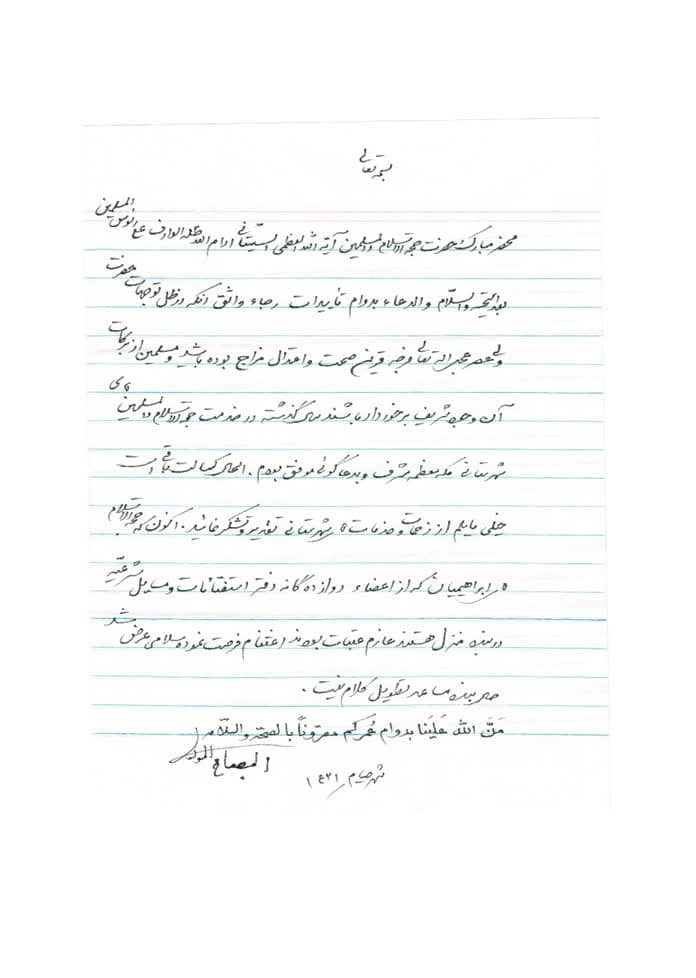 بسمه تعالی
محضر مبارک حضرت حجة الاسلام والمسلمین آیة الله العظمی السیستانی ادام الله ظله الوارف علی رؤوس المسلمین
بعد التحیة والسلام والدعاء بدوام تأییدات رجاء واثق آنکه در ظل توجهات حضرت
ولی عصر عجل الله تعالی فرجه قرین صحت و اعتدال مزاج بوده باشید و مسلمین از برکات
آن وجود شریف برخوردار باشند سال گذشته در خدمت حجة الاسلام والمسلمین آقای
شهرستانی مکه معظمه مشرف و بدعاگوئی موفق بودم. الحال کسالت باقی است
خیلی مایلم از زحمات و خدمات آقای شهرستانی تقدیر و تشکر نمائید. اکنون که حجة الاسلام
آقای ابراهیمیان که از اعضاء دوازده گانه دفتر استفتائات و مسایل شرعیّه
در منزل هستند عازم عتبات بودند اغتنام فرصت نموده سلامی عرض شد
حال بنده مساعد بتطویل کلام نیست.
مَنَّ الله عَلَینا بدوام عمرکم مقروناً بالصحة والسلامة
المصباح
شهر صیام ۱۴۳۱